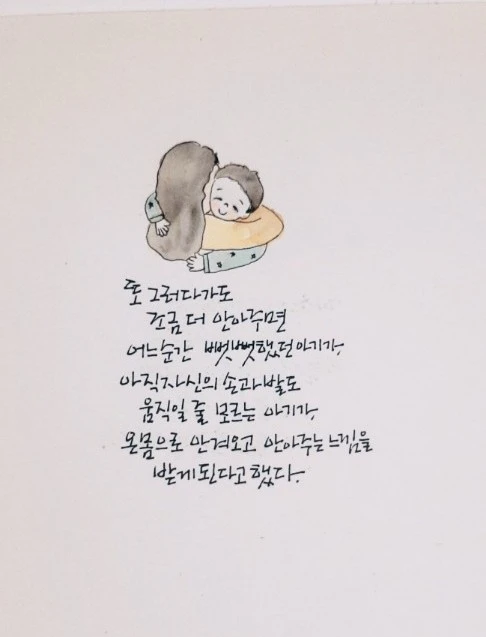 또 그러다가도
조금 더 안아주면
어느순간 뻣뻣했던아기가,
아직자신의 손과발도
움직일 줄 모르는 아기가,
온몸으로 안겨오고 안아주는느낌을
받게된다고했다.